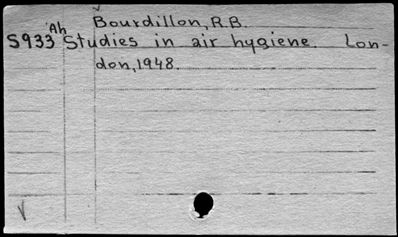 Bourdillon, R.B.
Ah
S933 Studies in air hygiene. Lon-
don, 1948.